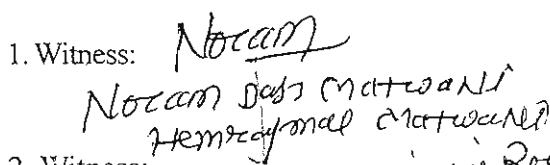 1. Witness: Nocam
Nocam Dass Matwani
Hemraymal Matwani
2. Witness: